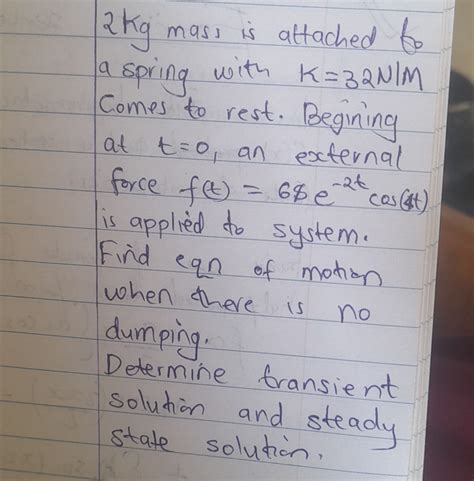 2kg mass is attached to
a spring with K=32N/M
Comes to rest. Begining
at t=0, an external
force f(t) = 68e^-2t cos(4t)
is applied to system.
Find eqn of motion
when there is no
dumping.
Determine transient
solution and steady
state solution.